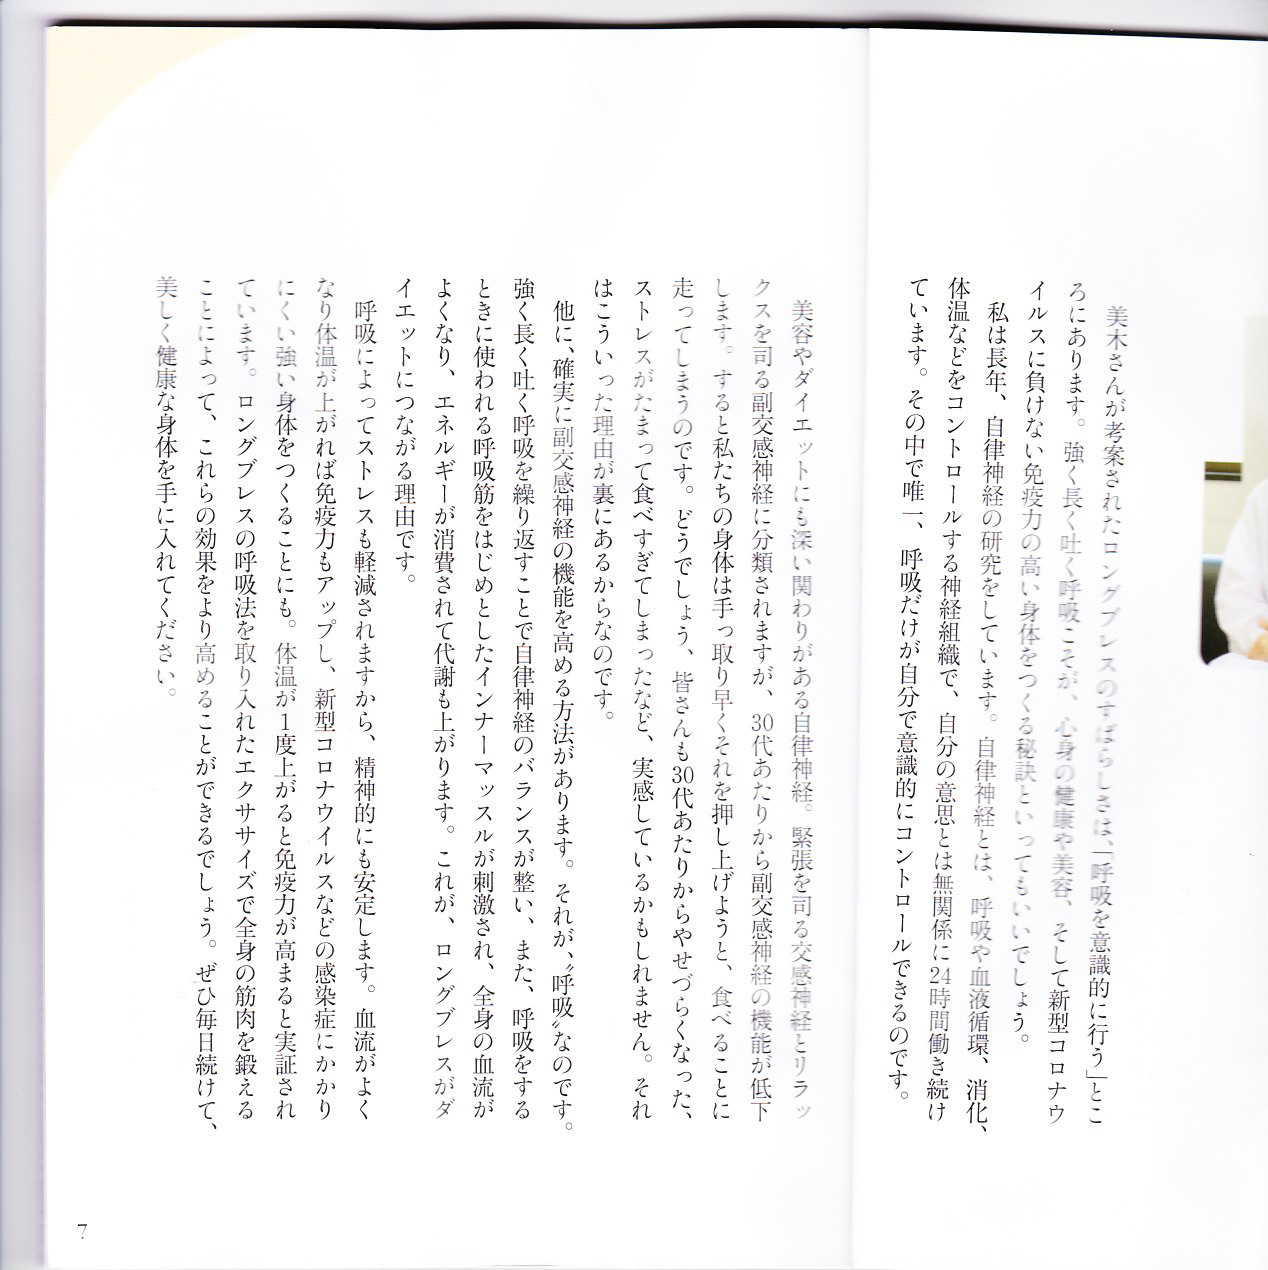 美木さんが考案されたロングブレスのすばらしさは、「呼吸を意識的に行う」とこ
ろにあります。強く長く吐く呼吸こそが、心身の健康や美容、そして新型コロナウ
イルスに負けない免疫力の高い身体をつくる秘訣といってもいいでしょう。
私は長年、自律神経の研究をしています。自律神経とは、呼吸や血液循環、消化、
体温などをコントロールする神経組織で、自分の意思とは無関係に24時間働き続け
ています。その中で唯一、呼吸だけが自分で意識的にコントロールできるのです。
美容やダイエットにも深い関わりがある自律神経。緊張を司る交感神経とリラッ
クスを司る副交感神経に分類されますが、30代あたりから副交感神経の機能が低下
します。すると私たちの身体は手っ取り早くそれを押し上げようと、食べることに
走ってしまうのです。どうでしょう、皆さんも30代あたりからやせづらくなった、
ストレスがたまって食べすぎてしまったなど、実感しているかもしれません。それ
はこういった理由が裏にあるからなのです。
他に、確実に副交感神経の機能を高める方法があります。それが、〝呼吸〟なのです。
強く長く吐く呼吸を繰り返すことで自律神経のバランスが整い、また、呼吸をする
ときに使われる呼吸筋をはじめとしたインナーマッスルが刺激され、全身の血流が
よくなり、エネルギーが消費されて代謝も上がります。これが、ロングブレスがダ
イエットにつながる理由です。
呼吸によってストレスも軽減されますから、精神的にも安定します。血流がよく
なり体温が上がれば免疫力もアップし、新型コロナウイルスなどの感染症にかかり
にくい強い身体をつくることにも。体温が1度上がると免疫力が高まると実証され
ています。ロングブレスの呼吸法を取り入れたエクササイズで全身の筋肉を鍛える
ことによって、これらの効果をより高めることができるでしょう。ぜひ毎日続けて、
美しく健康な身体を手に入れてください。
7